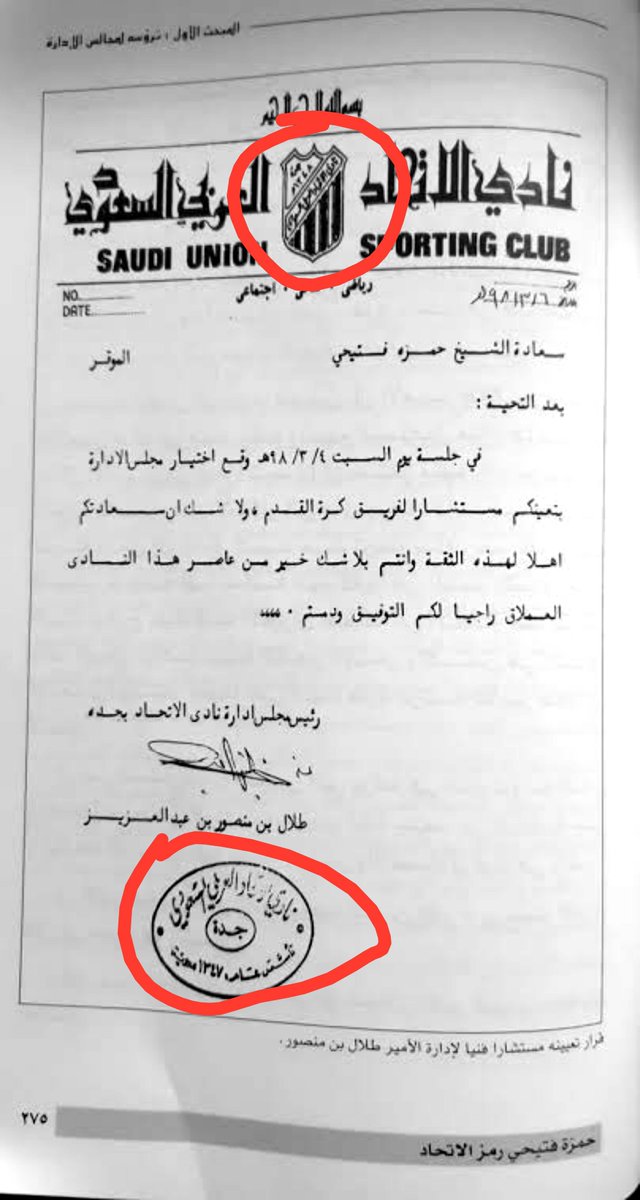 المبحث الأول : ترؤسه لمجالس الإدارة
بسم الله
نادي الاتحاد العربي السعودي
SAUDI UNION SPORTING CLUB
رياضي اجتماعي
NO.
DATE
سعادة الشيخ حمزه فتيحي الموقر
بعد التحية :
في جلسة يوم السبت ٩٨/٣/٤هـ وقع اختيار مجلس الادارة
بتعينكم مستشارا لفريق كرة القدم ولا شك ان سعادتكم
اهلا لهذه الثقة وانتم بلا شك خير من عاصر هذا النادى
العملاق راجيا لكم التوفيق ودمتم ،،،،
رئيس مجلس ادارة نادى الاتحاد بجده
طلال بن منصور بن عبدالعزيز
نادي الاتحاد العربي السعودي
جدة
تأسس عام ١٣٤٧ هجرية
قرار تعيينه مستشارا فنيا لإدارة الأمير طلال بن منصور.
٢٧٥
حمزة فتيحي رمز الاتحاد